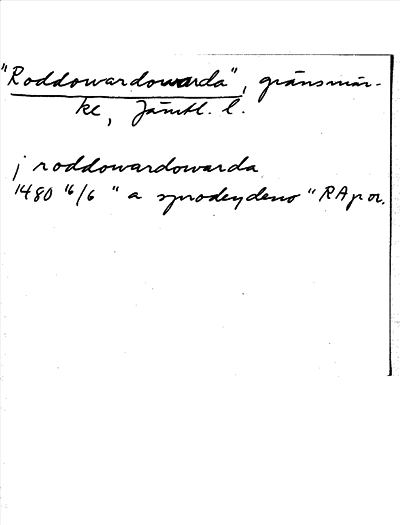 "Roddowardowarda", gränsmär-
ke, Jämtl. l.
j roddowardowarda
1480 16/6 "a syrodeydeno" RAp or.